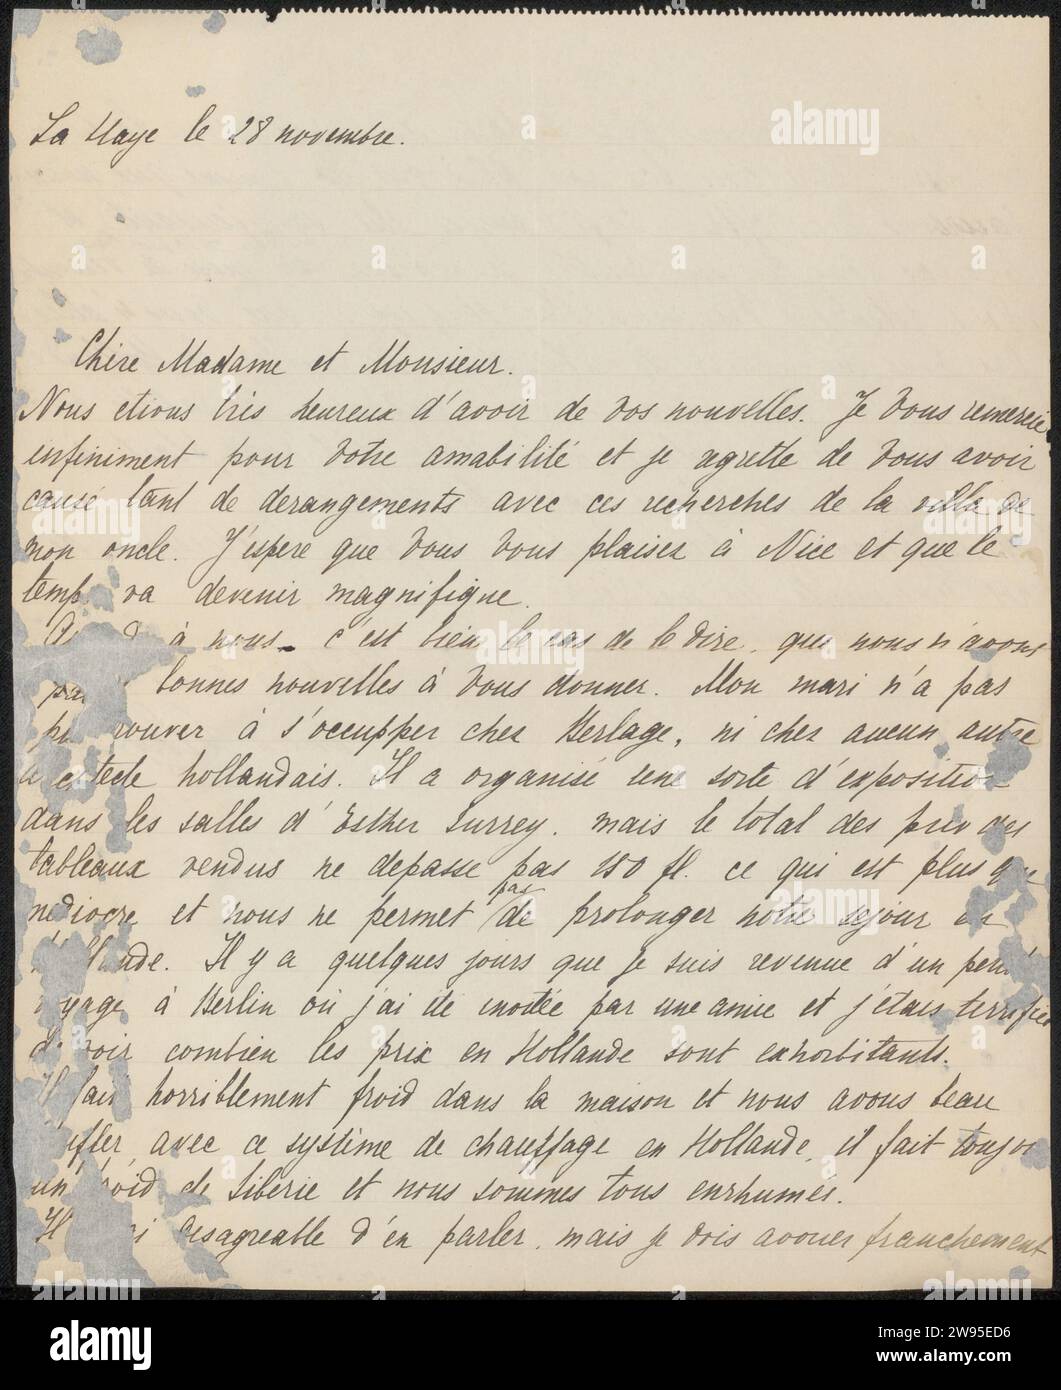 La Haye le 28 novembre.
Chère Madame et Monsieur.
Nous etions très heureux d'avoir de vos nouvelles. Je vous remercie
infiniment pour votre amabilité et je regrette de vous avoir
causé tant de derangements avec ces recherches de la villa de
mon oncle. J'espere que vous vous plaisez à Nice et que le
temps va devenir magnifique.
à nous - c'est bien le cas de le dire, que nous n'avons
pas bonnes nouvelles à vous donner. Mon mari n'a pas
trouver à s'occupper chez Berlage, ni chez aucun autre
architecte hollandais. Il a organisé une sorte d'exposition
dans les salles d'Esther Surrey, mais le total des prix des
tableaux vendus ne depasse pas 180 fl. ce qui est plus que
médiocre et nous ne permet pas de prolonger notre sejour en
Hollande. Il y a quelques jours que je suis revenue d'un petit
voyage à Berlin où j'ai été invitée par une amie et j'étais terrifiée
de voir combien les prix en Hollande sont exhorbitants.
Il fait horriblement froid dans la maison et nous avons beau
chauffer avec ce système de chauffage en Hollande, il fait toujours
un froid de Siberie et nous sommes tous enrhumés.
Il desagreable d'en parler, mais je dois avouer franchement
alamy
Image ID: 2W95ED6
www.alamy.com